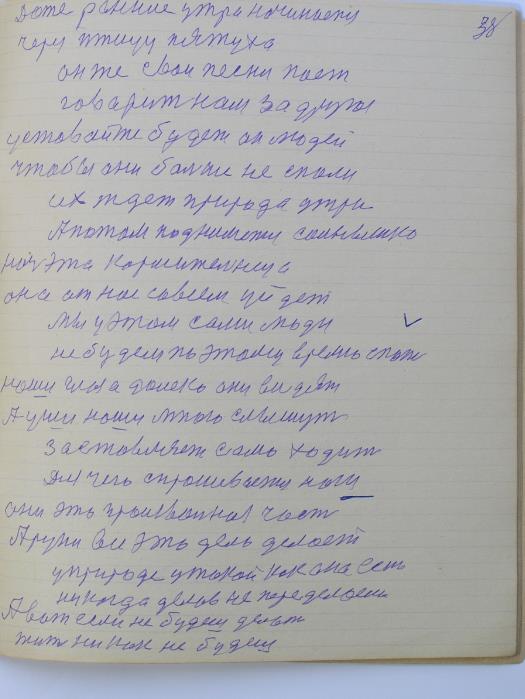 38
Даже ранние утра начинаеця
через птицу пятуха
он же свои песни поет
говарит нам за други
уставайте будет он людей
чтобы они больше не спали
их ждет природа утра
А потом поднимется солнышко
ноч эта кормительница
она от нас совсем уйдет
мы у этом сами люди
не будем по этому время спать
наши глаза далеко они видят
А уши наши много слышут
заставляет само ходит
Для чего спрашивается ноги
они эть произвольная част
А руки все эть дель делает
у природе у такой как она есть
никогда делов не переделаеш
А вот если не будеш делат
жить ни как не будеш